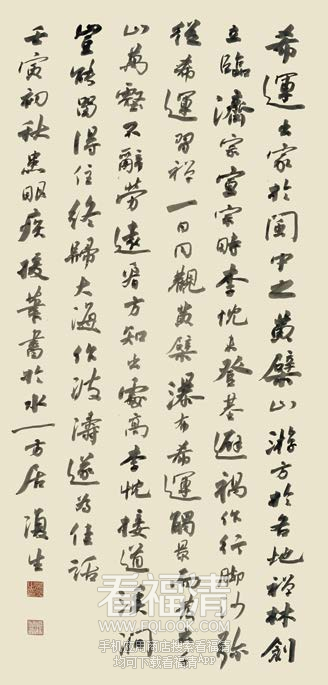 希運出家於閩中之黃檗山游方於各地禪林創
立臨濟宗宣宗時李忱未登基避禍作行腳沙弥
從希運習禪一日同觀黃檗瀑布希運觸景而云千
山萬壑不辭勞遠看方知出處高李忱接道溪澗
豈能留得住終歸大海作波濤遂為佳話
壬寅初秋患眼疾後書於水一方居
看福清
WWW.FQLOOK.COM
手机应用商店搜索看福清
均可下载看福清APP